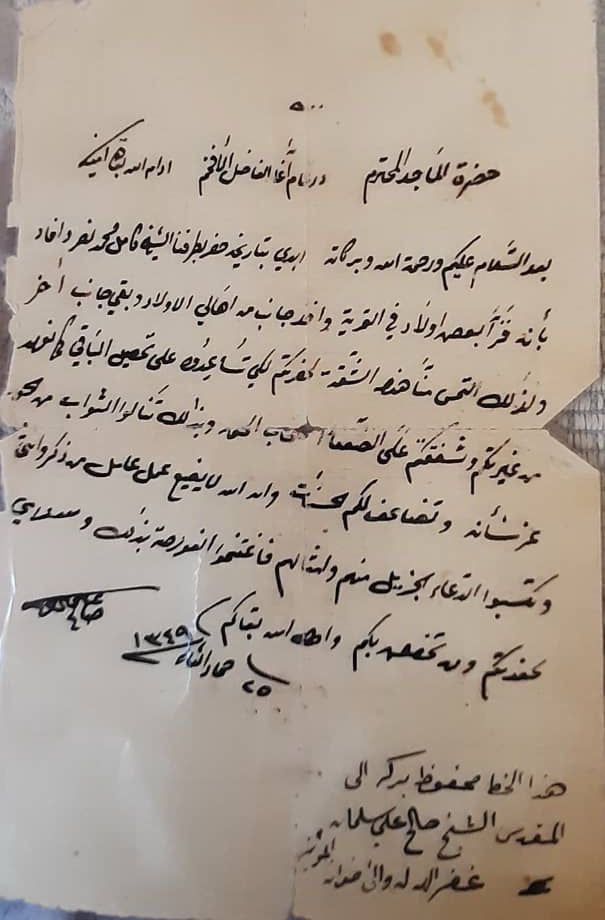 ٥٠٠
حضرة الماجد المحترم درسام آغا الفاضل الأفخم ادام الله بقاه آمين
بعد السلام عليكم ورحمة الله وبركاته ابدي بتاريخه حضر لطرفنا الشيخ كامل محمد نصر وافاد
بأنه قرّأ بعض اولاد في القرية واخذ جانب من اهالي الاولاد وبقي جانب أخر
ولذلك التمس منا هذه الشقة لحضرتكم لكي تساعدوه على تحصيل الباقي كما نعهد
من غيرتكم وشفقتكم على الضعفا وبذلك تنالوا الثواب من
عز شأنه وتضاعف لكم الحسنات وان الله لا يضيع عمل عامل من ذكر وانثى
وتكسبوا الدعاء الجزيل منهم ولامثالهم فاغتنموا الفرصة بذلك وسلامي
لحضرتكم ومن تخصص بكم واطال الله بقاكم
٢٥ جماد الثاني ١٣٤٩
صالح
هذا الخط محفوظ بركه الى
المقدس الشيخ صالح علي سلمان
غفر الله له والى اخوانه المؤمنين